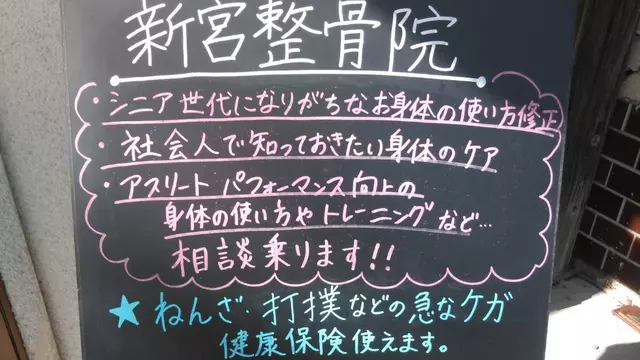 新宮整骨院
・シニア世代になりがちなお身体の使い方修正
・社会人で知っておきたい身体のケア
・アスリートパフォーマンス向上の
身体の使い方やトレーニングなど…
相談乗ります!!
★ねんざ・打撲などの急なケガ
健康保険使えます。